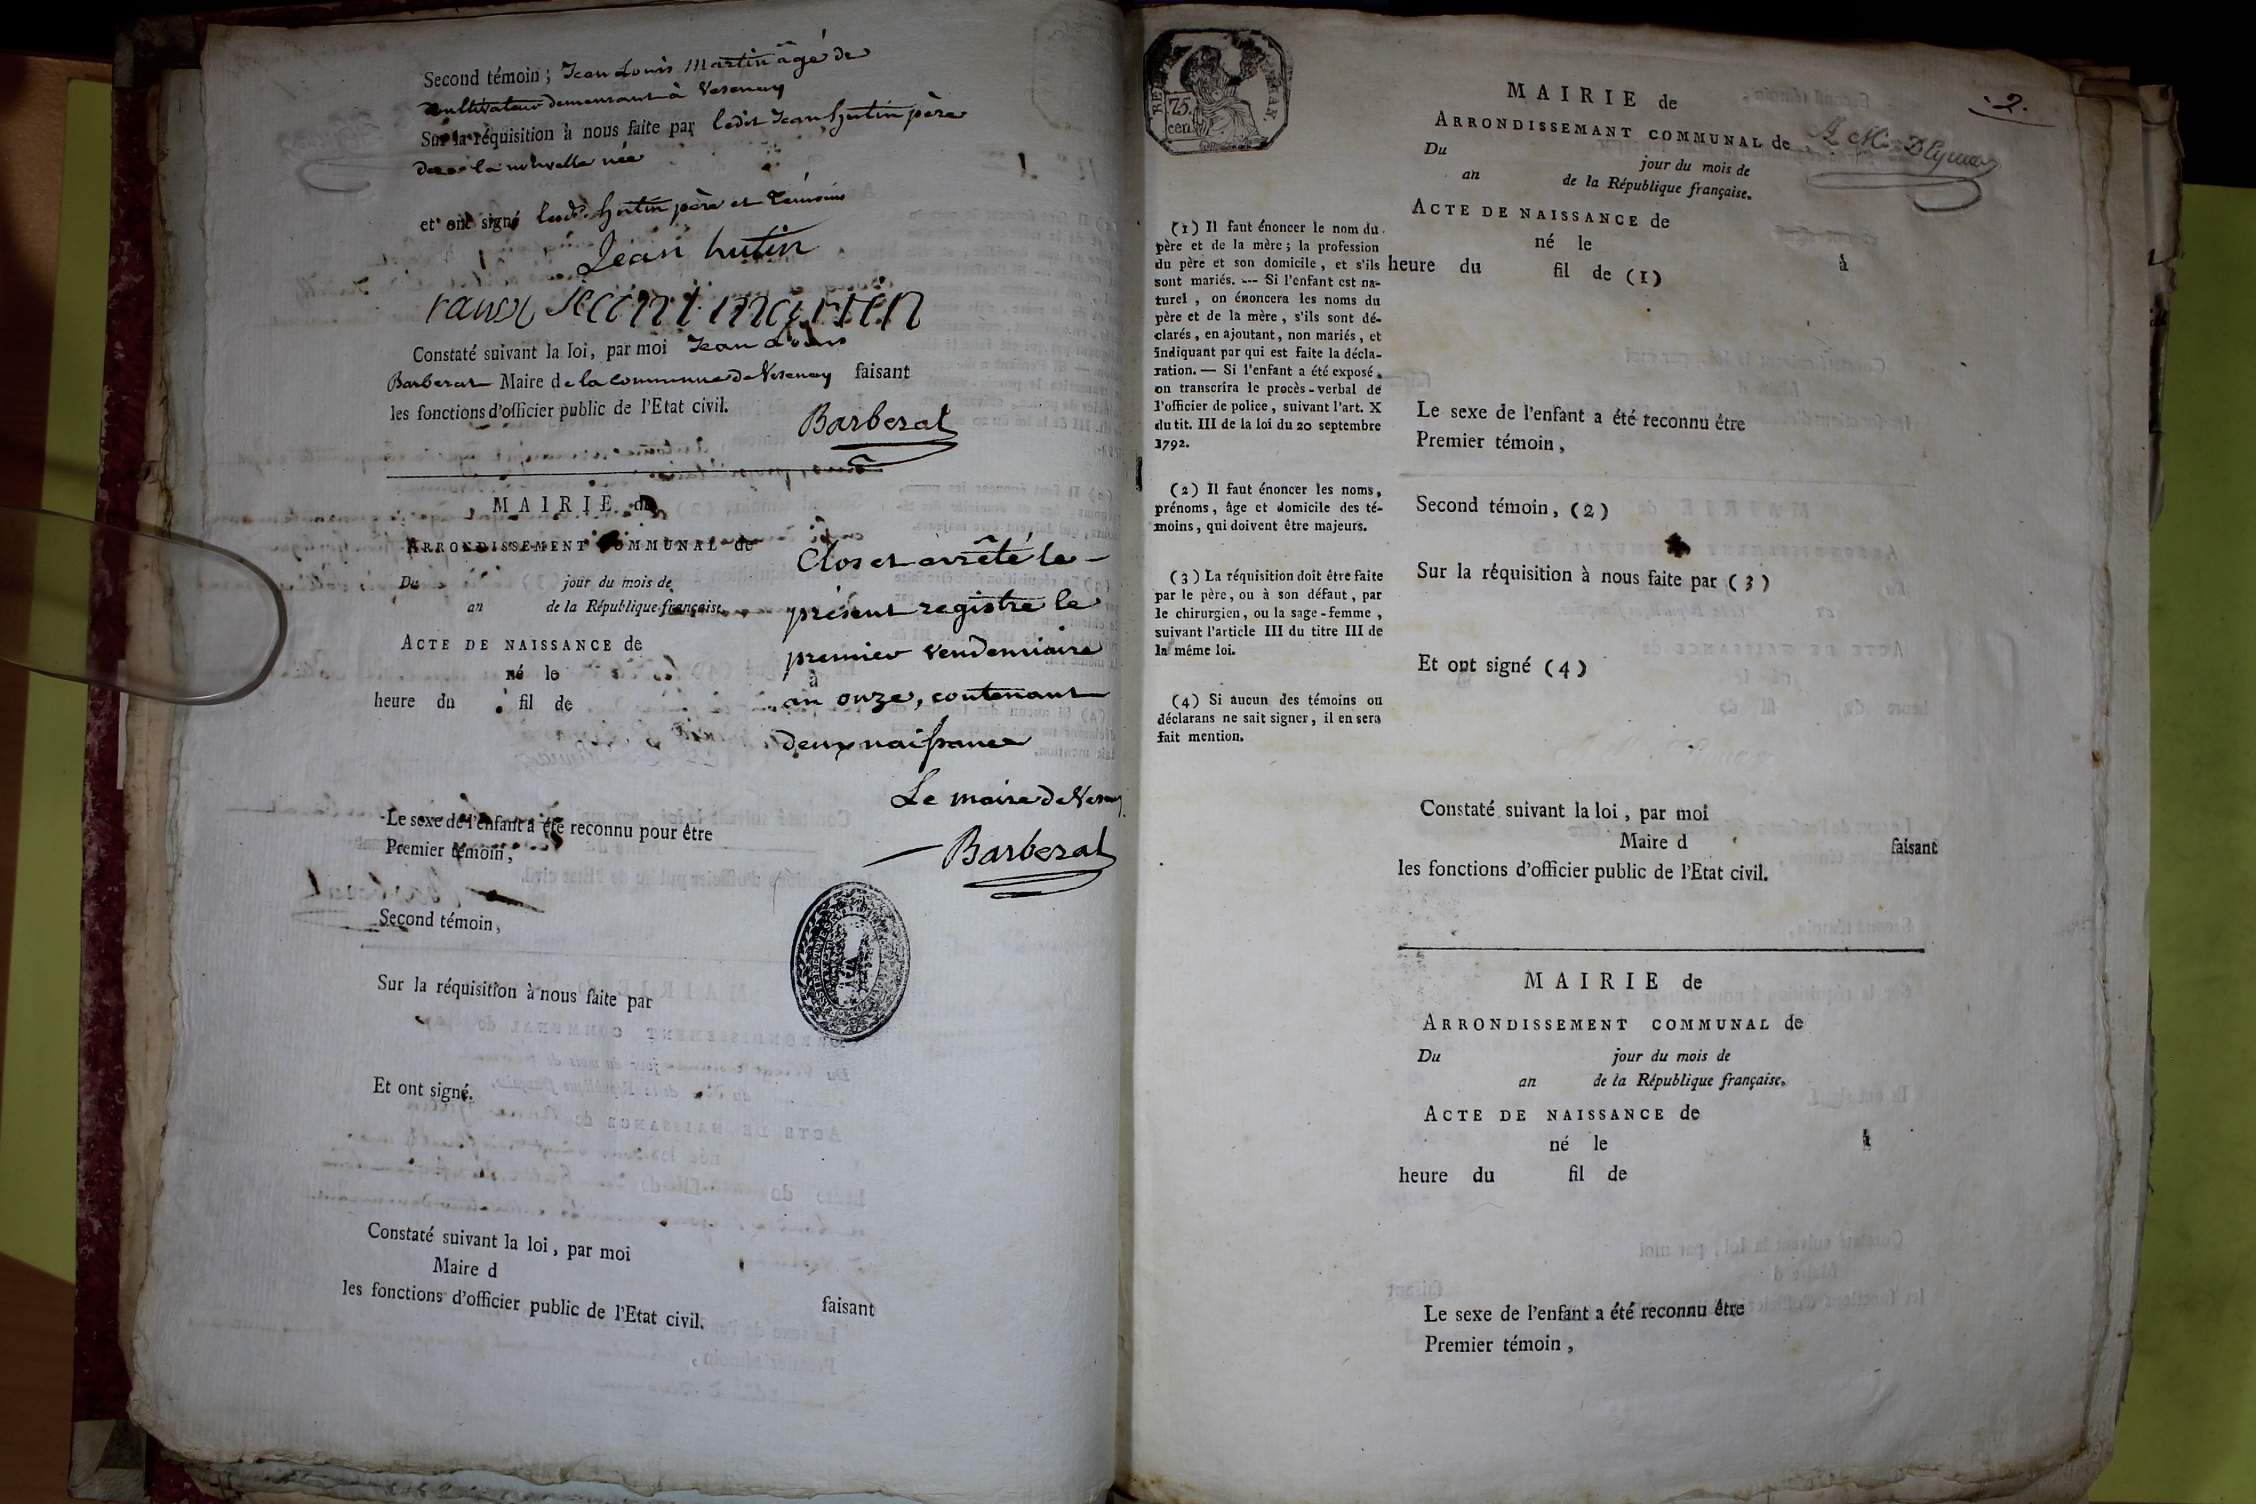 Second témoin ; Jean Louis Martin âgé de
cultivateur demeurant à Vesenay
Sur la réquisition à nous faite par ledit Jean hutin père
de la nouvelle née
et ont signé lesd. hutin père et témoins
Jean hutin
martin
Constaté suivant la loi, par moi Jean Louis
Barberat Maire de la commune de Vesenay faisant
les fonctions d'officier public de l'Etat civil.
Barberat
MAIRIE de
ARRONDISSEMENT COMMUNAL de
Du jour du mois de
an de la République française.
ACTE DE NAISSANCE de
né le à
heure du fil de
Clos et arrêté le
présent registre le
premier vendemiaire
an onze, contenant
deux naissance
Le maire de
Barberat
Le sexe de l'enfant a été reconnu pour être
Premier témoin,
Second témoin,
Sur la réquisition à nous faite par
Et ont signé.
Constaté suivant la loi, par moi
Maire d
faisant
les fonctions d'officier public de l'Etat civil.
75.
cen.
2.
MAIRIE de
ARRONDISSEMANT COMMUNAL de
Du jour du mois de
an de la République française.
ACTE DE NAISSANCE de
né le à
heure du fil de (1)
(1) Il faut énoncer le nom du
père et de la mère ; la profession
du père et son domicile, et s'ils
sont mariés. --- Si l'enfant est na-
turel, on énoncera les noms du
père et de la mère, s'ils sont dé-
clarés, en ajoutant, non mariés, et
indiquant par qui est faite la décla-
ration. — Si l'enfant a été exposé,
on transcrira le procès-verbal de
l'officier de police, suivant l'art. X
du tit. III de la loi du 20 septembre
1792.
(2) Il faut énoncer les noms,
prénoms, âge et domicile des té-
moins, qui doivent être majeurs.
(3) La réquisition doit être faite
par le père, ou à son défaut, par
le chirurgien, ou la sage-femme,
suivant l'article III du titre III de
la même loi.
(4) Si aucun des témoins ou
déclarans ne sait signer, il en sera
fait mention.
Le sexe de l'enfant a été reconnu être
Premier témoin,
Second témoin, (2)
Sur la réquisition à nous faite par (3)
Et ont signé (4)
Constaté suivant la loi, par moi
Maire d faisant
les fonctions d'officier public de l'Etat civil.
MAIRIE de
ARRONDISSEMENT COMMUNAL de
Du jour du mois de
an de la République française.
ACTE DE NAISSANCE de
né le à
heure du fil de
Le sexe de l'enfant a été reconnu être
Premier témoin,